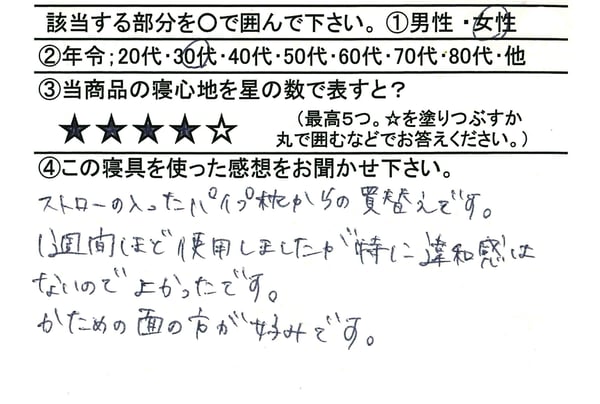 該当する部分を○で囲んで下さい。①男性・女性
②年令;20代・30代・40代・50代・60代・70代・80代・他
③当商品の寝心地を星の数で表すと?
★★★★☆ (最高5つ。☆を塗りつぶすか
丸で囲むなどでお答えください。)
④この寝具を使った感想をお聞かせ下さい。
ストローの入ったパイプ枕からの買替えです。
1週間ほど使用しましたが特に違和感は
ないのでよかったです。
かための面の方が好みです。